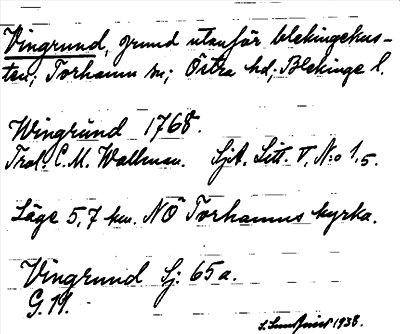 Vingrund, grund utanför blekingekus-
ten; Torhamn sn; Östra hd; Blekinge l.
Wingrund 1768.
Tral. C. M. Wallman. SjA. Litt. V, N:o 1,5.
Läge 5,7 km. NÖ Torhamns kyrka.
Vingrund Sj: 65 a.
G. 11.
1938.